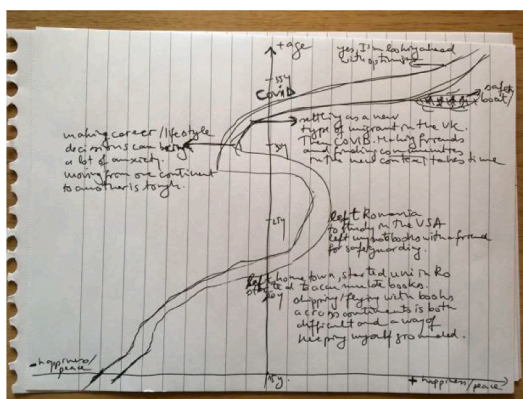 +age
yes, I'm looking ahead
with optimism
35y
COVID
safety
boat
settling as a new
type of migrant in the UK.
Then COVID. Making friends
and making communities
in the new context takes time
making career/lifestyle
decisions can bring
a lot of anxiety.
moving from one continent
to another is tough.
30y
left Romania
to study in the USA
left my notebooks with a friend
for safeguarding.
25y
left home town, started uni in Ro
started to accumulate books.
20y
shipping/flying with books
across continents is both
difficult and a way of
keeping myself grounded.
- happiness/
peace
15y.
+ happiness/
peace